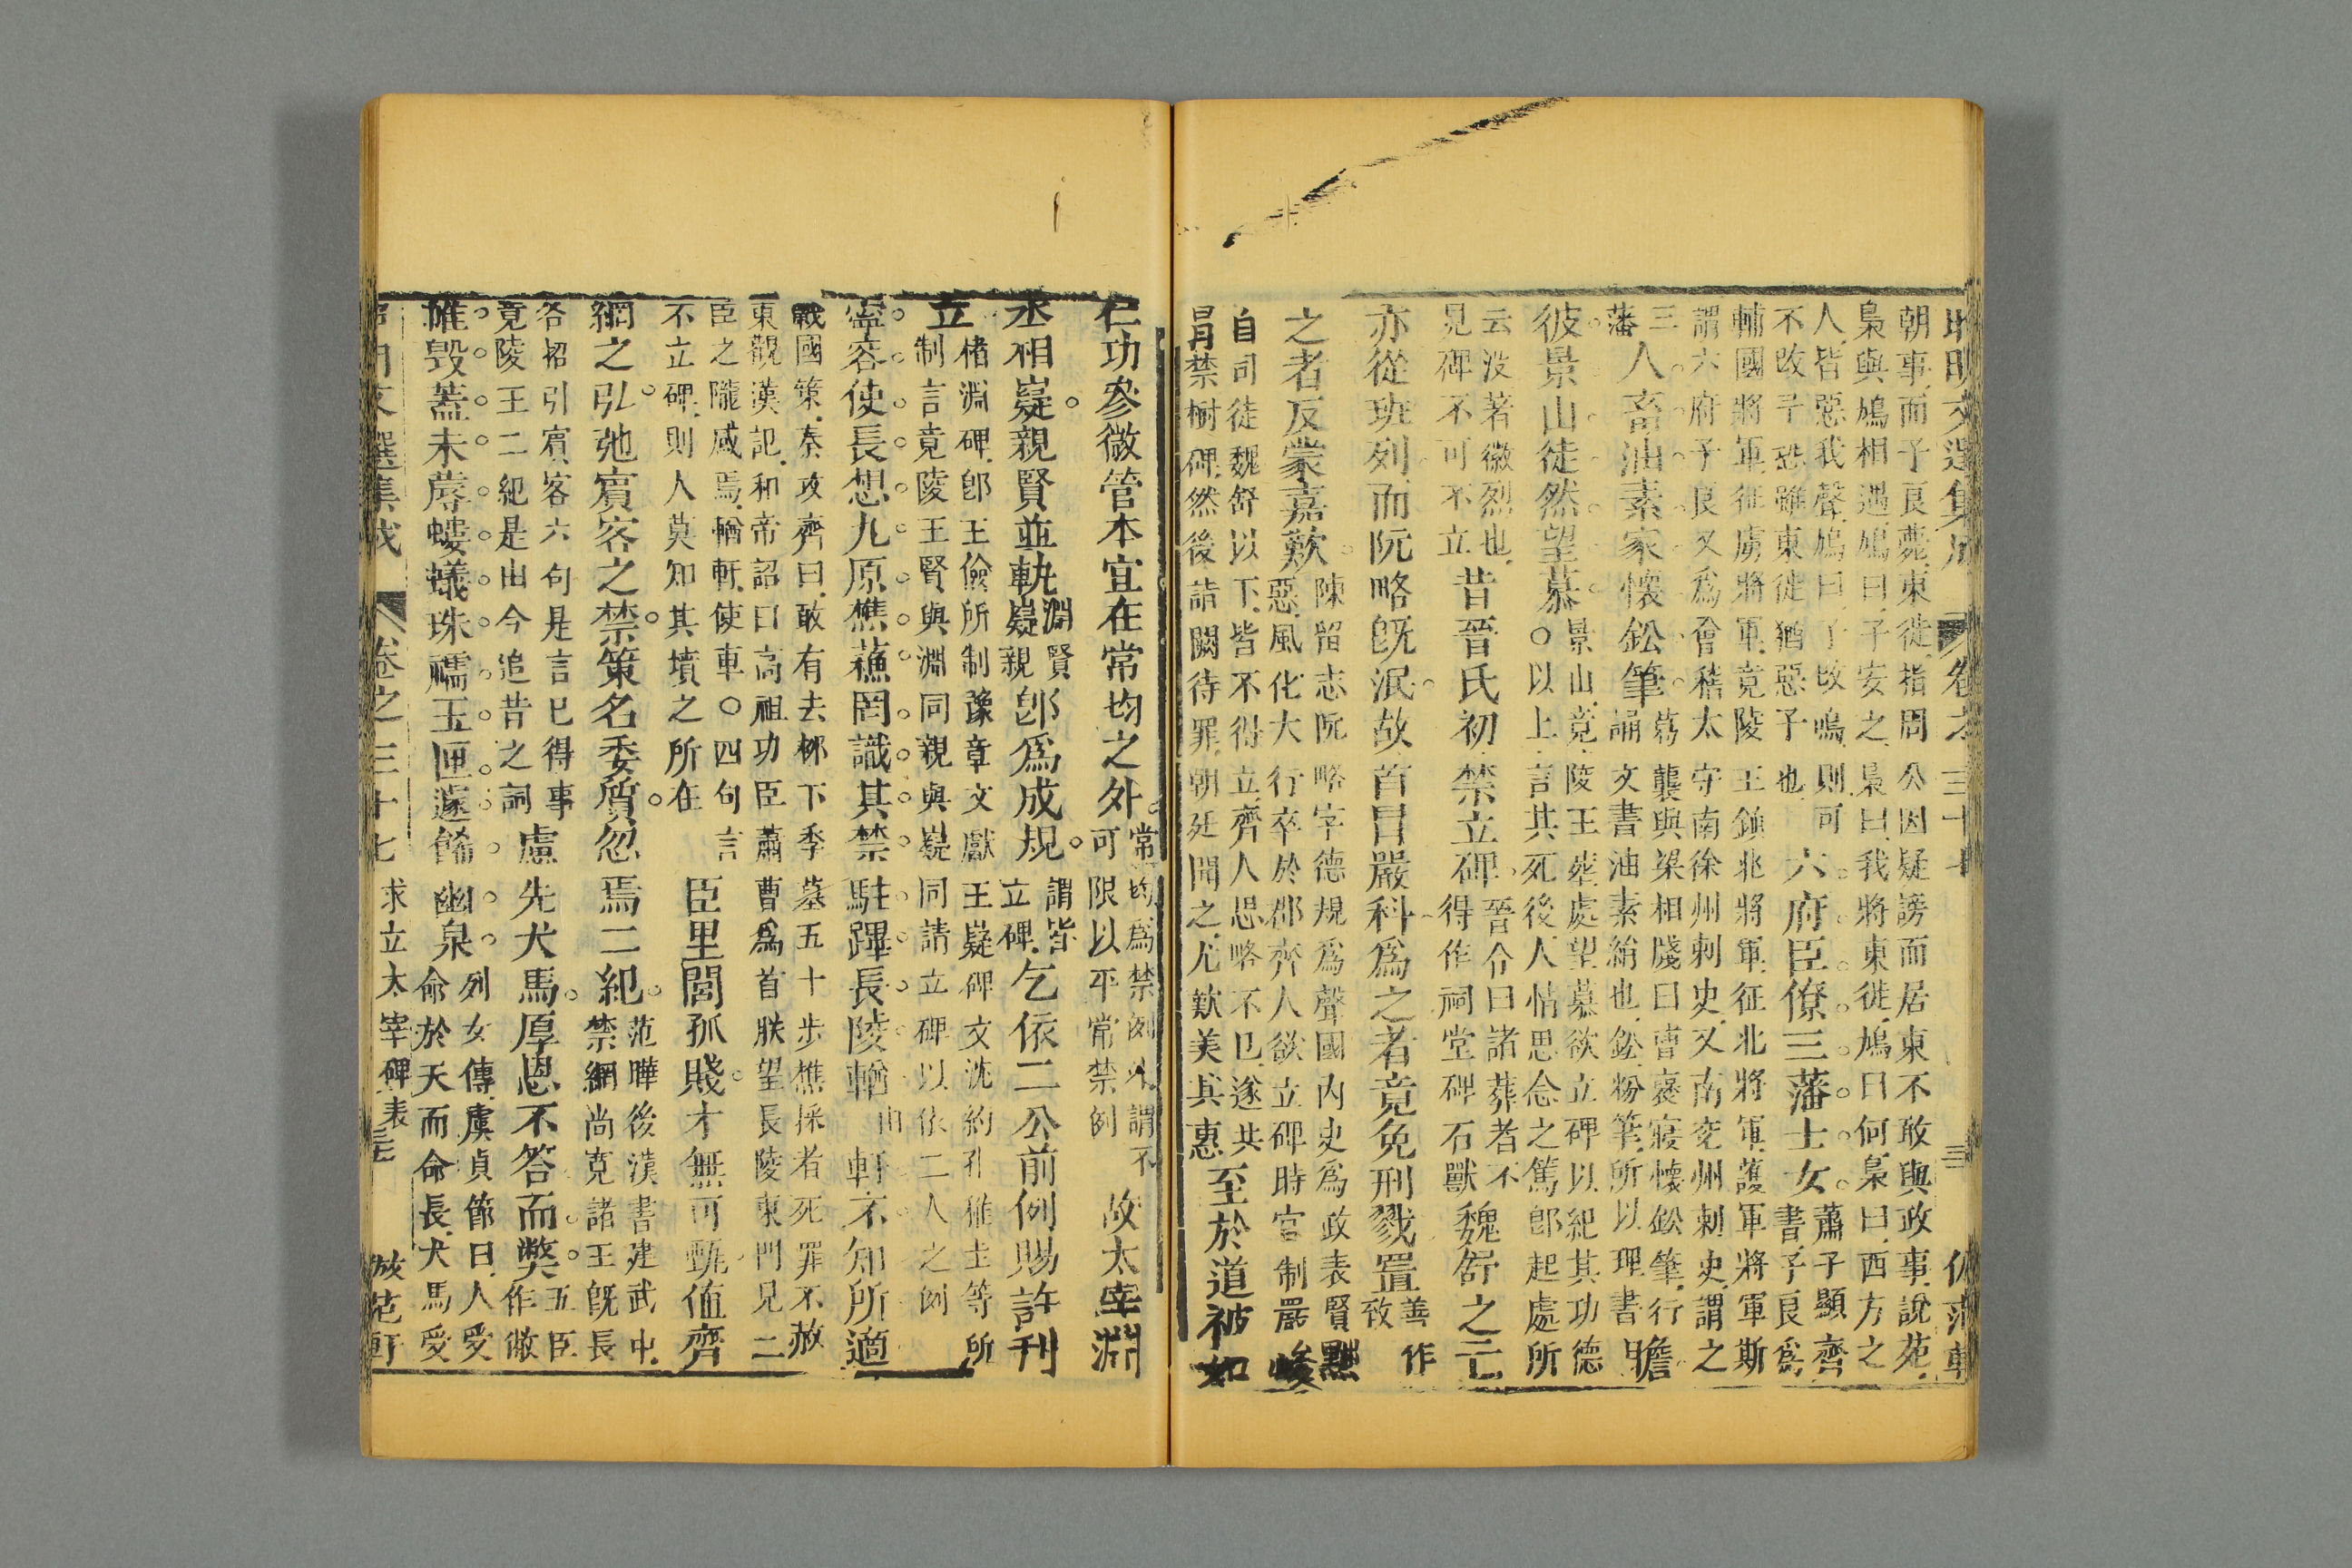 昭明文選集成 卷之三十七 三 倣范軒
朝事而子良薨東徙指周公因疑謗而居東不敢與政事說苑
梟與鳩相遇鳩曰子安之梟曰我將東徙鳩曰何梟曰西方之
人皆惡我聲鳩曰子改鳴則可
不改子恐雖東徙猶惡子也
六府臣僚三藩士女
蕭子顯齊
書子良爲
輔國將軍征虜將軍竟陵王鎮北將軍征北將軍護軍將軍斯
謂六府子良又爲會稽太守南徐州刺史又南兗州刺史謂之
三
藩
人畜油素家懷鉛筆
葛龔與梁相牋曰曹褒寢懷鉛筆行
誦文書油素絹也鉛粉筆所以理書
瞻
彼景山徒然望慕
景山竟陵王葬處望慕欲立碑以紀其功德
○以上言其死後人情思念之篤卽起處所
云沒著徽烈也
見碑不可不立
昔晉氏初禁立碑
晉令曰諸葬者不
得作祠堂碑石獸
魏舒之亡
亦從班列而阮略旣泯故首冒嚴科爲之者竟免刑戮置
善作
致
之者反蒙嘉歎
陳留志阮略字德規爲齊國內史爲政表賢黜
惡風化大行卒於郡齊人欲立碑時官制嚴峻
自司徒魏舒以下皆不得立齊人思略不已遂共
冒禁樹碑然後詣闕待罪朝廷聞之尤歎美其惠
至於道被如
仁功參微管本宜在常均之外
常均爲禁例外謂不
可限以平常禁例
故太宰淵
丞相嶷親賢並軌
淵賢
嶷親
卽爲成規
謂皆
立碑
乞依二公前例賜許刊
立
楮淵碑卽王儉所制豫章文獻王嶷碑文沈約孔稚圭等所
制言竟陵王賢與淵同親與嶷同請立碑以依二人之例
寧容使長想九原樵蘇罔識其禁駐蹕長陵輶
由
軒不知所適
戰國策秦攻齊曰敢有去柳下季墓五十步樵採者死罪不赦
東觀漢記和帝詔曰高祖功臣蕭曹爲首朕望長陵東門見二
臣之隴感焉輶軒使車○四句言
不立碑則人莫知其墳之所在
臣里閭孤賤才無可甄值齊
網之弘弛賓客之禁策名委質忽焉二紀
范曄後漢書建武中
禁網尚寬諸王旣長
各招引賓客六句是言已得事
竟陵王二紀是由今追昔之詞
慮先犬馬厚恩不答而弊
五臣
作徹
帷毀蓋未蓐螻蟻珠襦玉匣遽飾幽泉
列女傳虞貞節曰人受
命於天而命長犬馬受
昭明文選集成 卷之三十七 求立太宰碑表 倣范軒